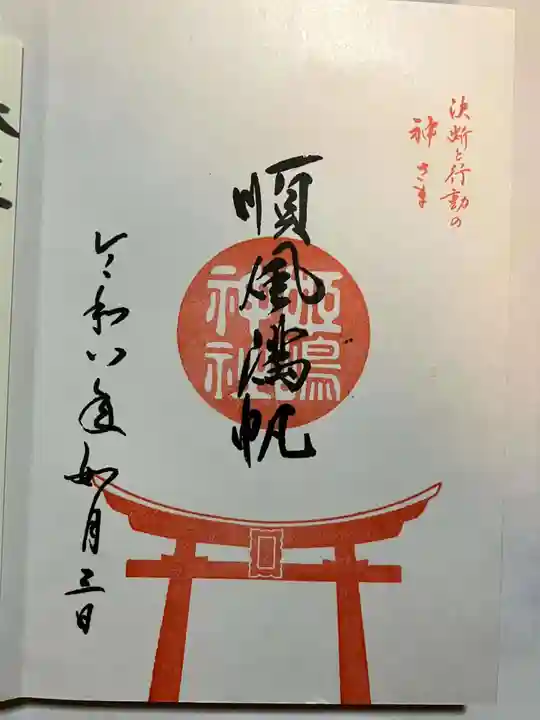 決断と行動の
神さま
順風満帆
神社
令和八年如月三日